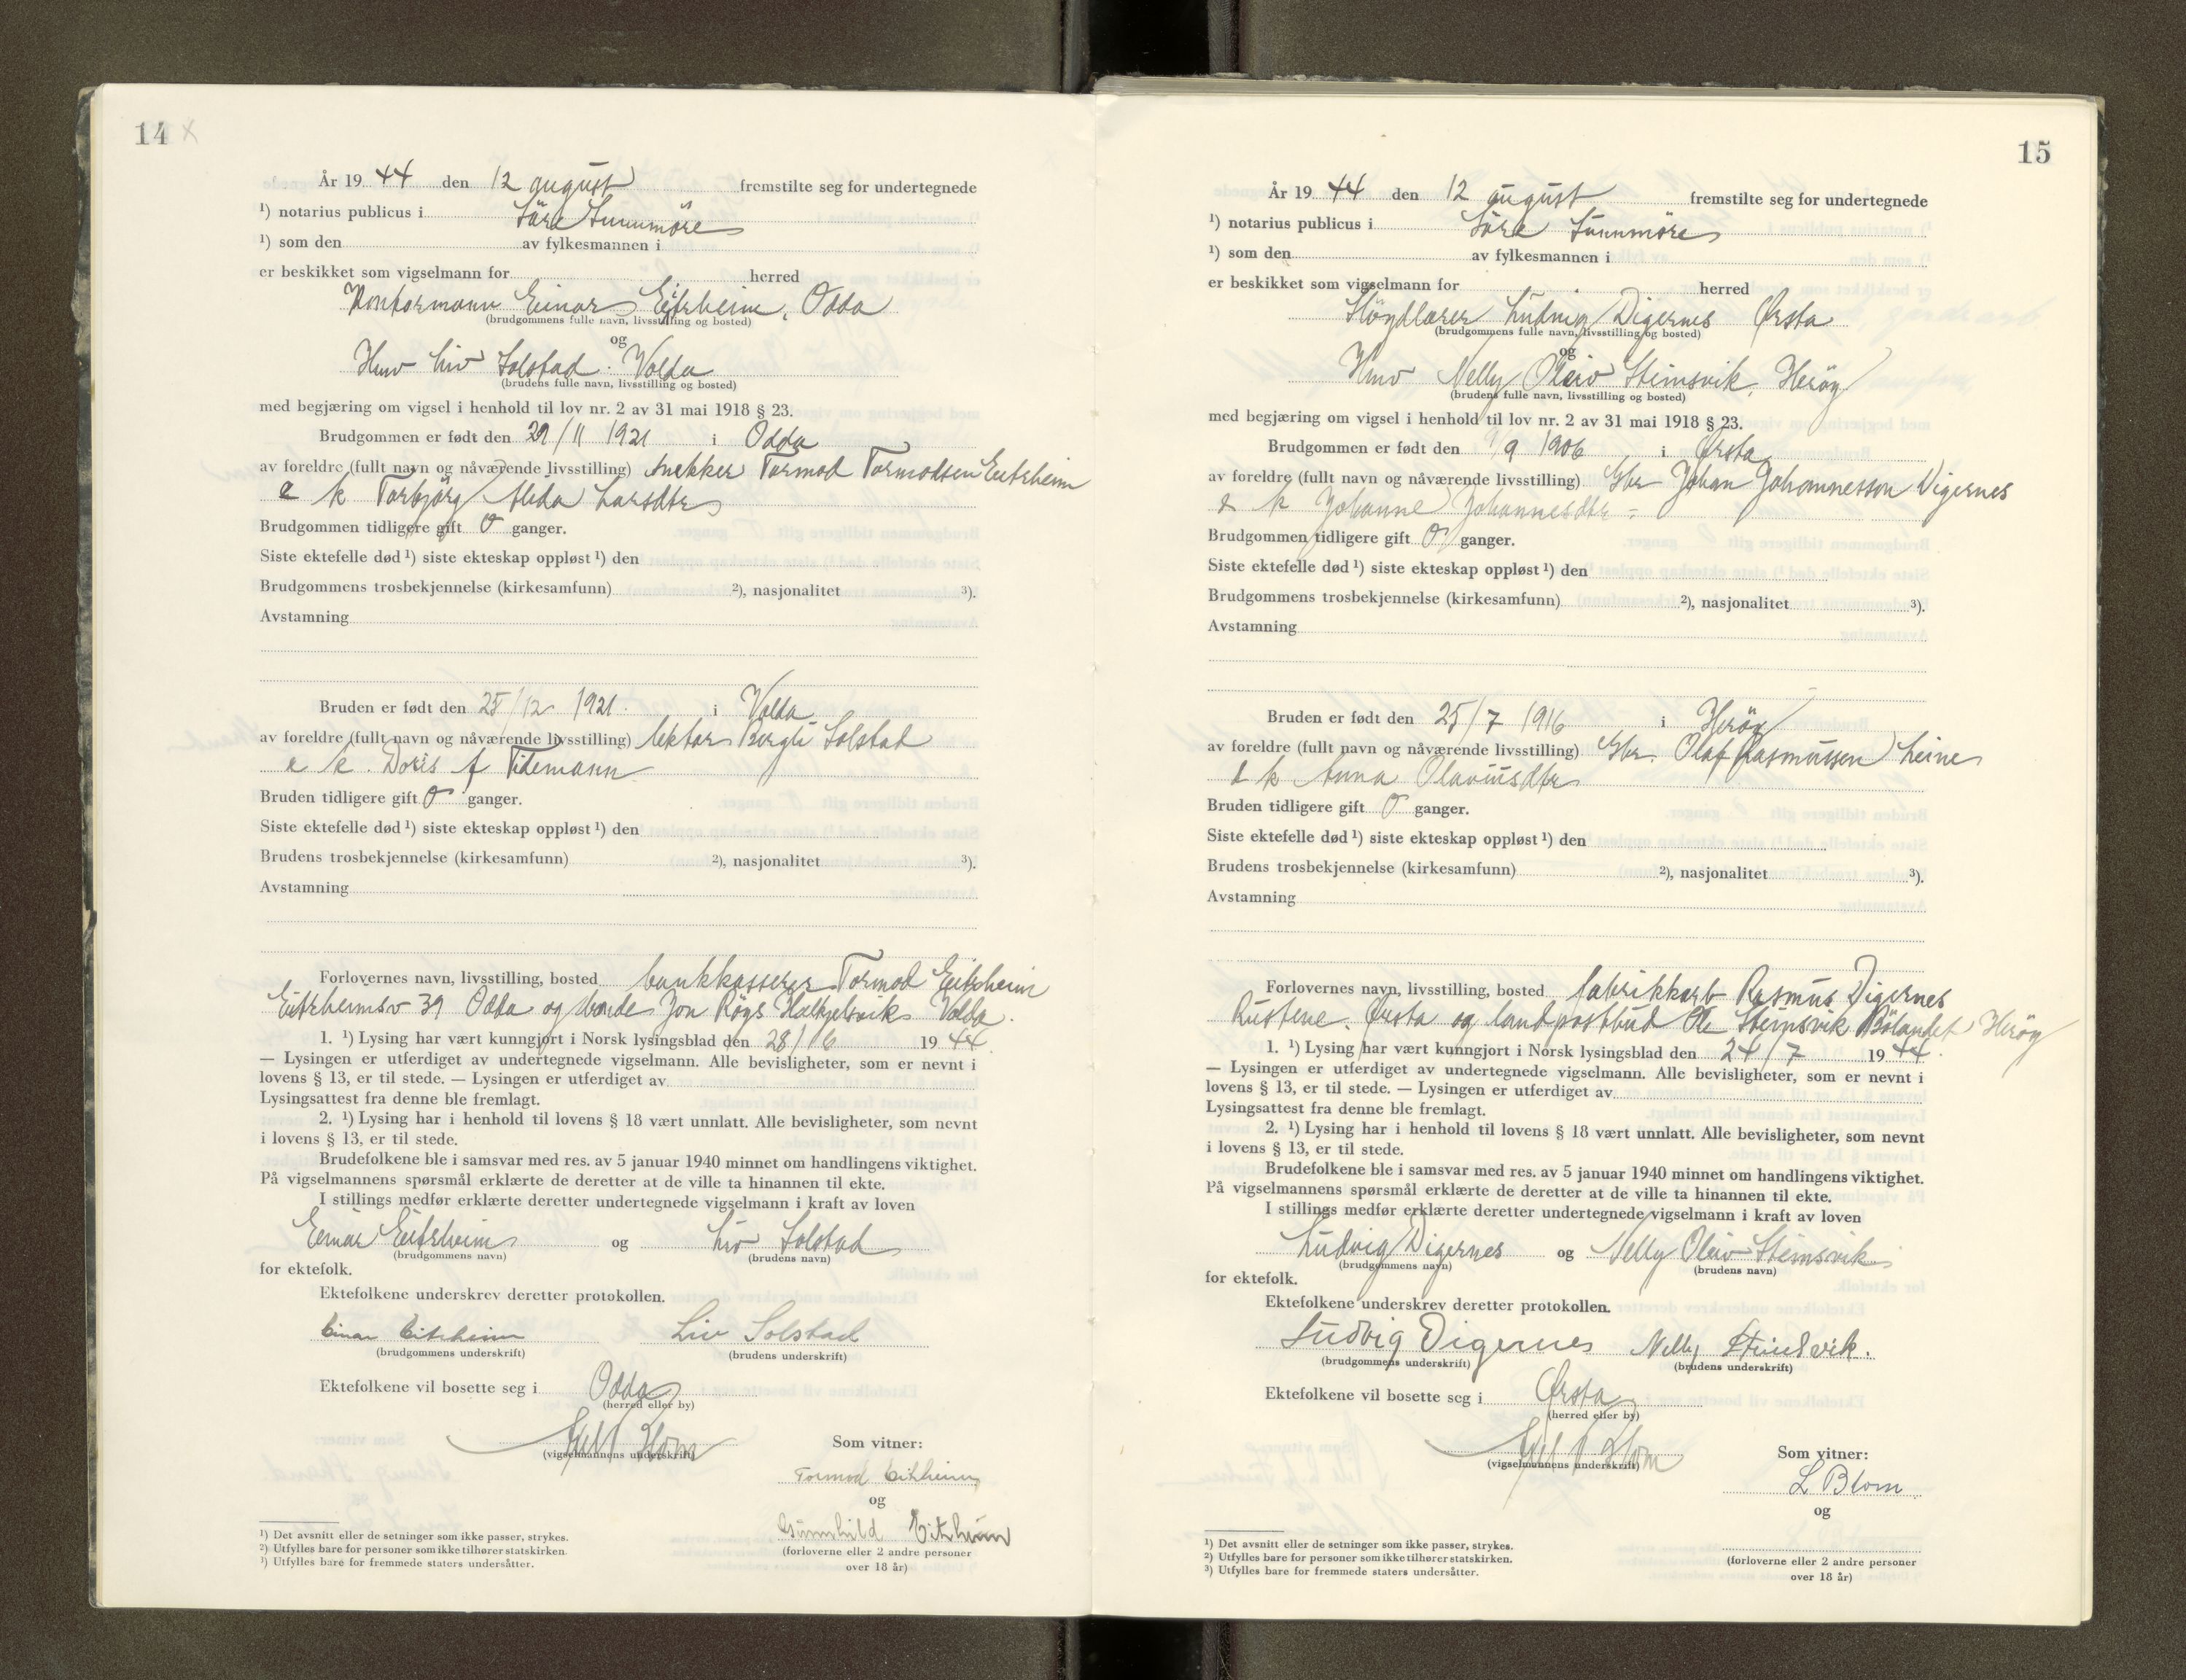 14 x
År 19 44 den 12 august fremstilte seg for undertegnede
¹) notarius publicus i Söre Sunnmöre
¹) som den av fylkesmannen i
er beskikket som vigselmann for herred
Kontormann Einar Eitrheim, Odda
(brudgommens fulle navn, livsstilling og bosted)
og
Hmv Liv Solstad. Volda
(brudens fulle navn, livsstilling og bosted)
med begjæring om vigsel i henhold til lov nr. 2 av 31 mai 1918 § 23.
Brudgommen er født den 29/11 1921 i Odda
av foreldre (fullt navn og nåværende livsstilling) snekker Tormod Tormodsen Eitrheim
e k Torbjörg Alida Larsdtr
Brudgommen tidligere gift 0 ganger.
Siste ektefelle død ¹) siste ekteskap oppløst ¹) den
Brudgommens trosbekjennelse (kirkesamfunn) ²), nasjonalitet ³).
Avstamning
Bruden er født den 25/12 1921. i Volda
av foreldre (fullt navn og nåværende livsstilling) lektor Bergli Solstad
e k. Doris f Tidemann
Bruden tidligere gift 0 ganger.
Siste ektefelle død ¹) siste ekteskap oppløst ¹) den
Brudens trosbekjennelse (kirkesamfunn) ²), nasjonalitet ³).
Avstamning
Forlovernes navn, livsstilling, bosted bankkasserer Tormod Eitrheim
Eitrheimsv 39 Odda og Jon Röys Halkjelsvik Volda.
1. ¹) Lysing har vært kunngjort i Norsk lysingsblad den 28/6 19 44.
— Lysingen er utferdiget av undertegnede vigselmann. Alle bevisligheter, som er nevnt i
lovens § 13, er til stede. — Lysingen er utferdiget av
Lysingsattest fra denne ble fremlagt.
2. ¹) Lysing har i henhold til lovens § 18 vært unnlatt. Alle bevisligheter, som nevnt
i lovens § 13, er til stede.
Brudefolkene ble i samsvar med res. av 5 januar 1940 minnet om handlingens viktighet.
På vigselmannens spørsmål erklærte de deretter at de ville ta hinannen til ekte.
I stillings medfør erklærte deretter undertegnede vigselmann i kraft av loven
Einar Eitrheim og Liv Solstad
(brudgommens navn) (brudens navn)
for ektefolk.
Ektefolkene underskrev deretter protokollen.
Einar Eitrheim Liv Solstad
(brudgommens underskrift) (brudens underskrift)
Ektefolkene vil bosette seg i Odda
(herred eller by)
(vigselmannens underskrift)
Som vitner:
Tormod Eitrheim
og
Gunnhild Eitrheim
(forloverne eller 2 andre personer
over 18 år)
¹) Det avsnitt eller de setninger som ikke passer, strykes.
²) Utfylles bare for personer som ikke tilhører statskirken.
³) Utfylles bare for fremmede staters undersåtter.
15
År 19 44 den 12 august fremstilte seg for undertegnede
¹) notarius publicus i Söre Sunnmöre
¹) som den av fylkesmannen i
er beskikket som vigselmann for herred
Slöydlærer Ludvig Digernes Ørsta
(brudgommens fulle navn, livsstilling og bosted)
og
Hmv Nelly Oleiv Steinsvik, Heröy
(brudens fulle navn, livsstilling og bosted)
med begjæring om vigsel i henhold til lov nr. 2 av 31 mai 1918 § 23.
Brudgommen er født den /9 1906 i Ørsta
av foreldre (fullt navn og nåværende livsstilling) Gbr Johan Johannesson Digernes
e k Johanne Johannesdtr =
Brudgommen tidligere gift 0 ganger.
Siste ektefelle død ¹) siste ekteskap oppløst ¹) den
Brudgommens trosbekjennelse (kirkesamfunn) ²), nasjonalitet ³).
Avstamning
Bruden er født den 25/7 1916 i Heröy
av foreldre (fullt navn og nåværende livsstilling) Gbr. Olaf Rasmussen Leine
e k Anna Olaviusdtr
Bruden tidligere gift 0 ganger.
Siste ektefelle død ¹) siste ekteskap oppløst ¹) den
Brudens trosbekjennelse (kirkesamfunn) ²), nasjonalitet ³).
Avstamning
Forlovernes navn, livsstilling, bosted fabrikkarb Rasmus Digernes
Rustene. Ørsta og landpostbud Ole Steinsvik Bölandet Heröy
1. ¹) Lysing har vært kunngjort i Norsk lysingsblad den 24/7 19 44.
— Lysingen er utferdiget av undertegnede vigselmann. Alle bevisligheter, som er nevnt i
lovens § 13, er til stede. — Lysingen er utferdiget av
Lysingsattest fra denne ble fremlagt.
2. ¹) Lysing har i henhold til lovens § 18 vært unnlatt. Alle bevisligheter, som nevnt
i lovens § 13, er til stede.
Brudefolkene ble i samsvar med res. av 5 januar 1940 minnet om handlingens viktighet.
På vigselmannens spørsmål erklærte de deretter at de ville ta hinannen til ekte.
I stillings medfør erklærte deretter undertegnede vigselmann i kraft av loven
Ludvig Digernes og Nelly Oleiv Steinsvik
(brudgommens navn) (brudens navn)
for ektefolk.
Ektefolkene underskrev deretter protokollen.
Ludvig Digernes Nelly Steinsvik.
(brudgommens underskrift) (brudens underskrift)
Ektefolkene vil bosette seg i Ørsta
(herred eller by)
(vigselmannens underskrift)
Som vitner:
L Blom
og
(forloverne eller 2 andre personer
over 18 år)
¹) Det avsnitt eller de setninger som ikke passer, strykes.
²) Utfylles bare for personer som ikke tilhører statskirken.
³) Utfylles bare for fremmede staters undersåtter.